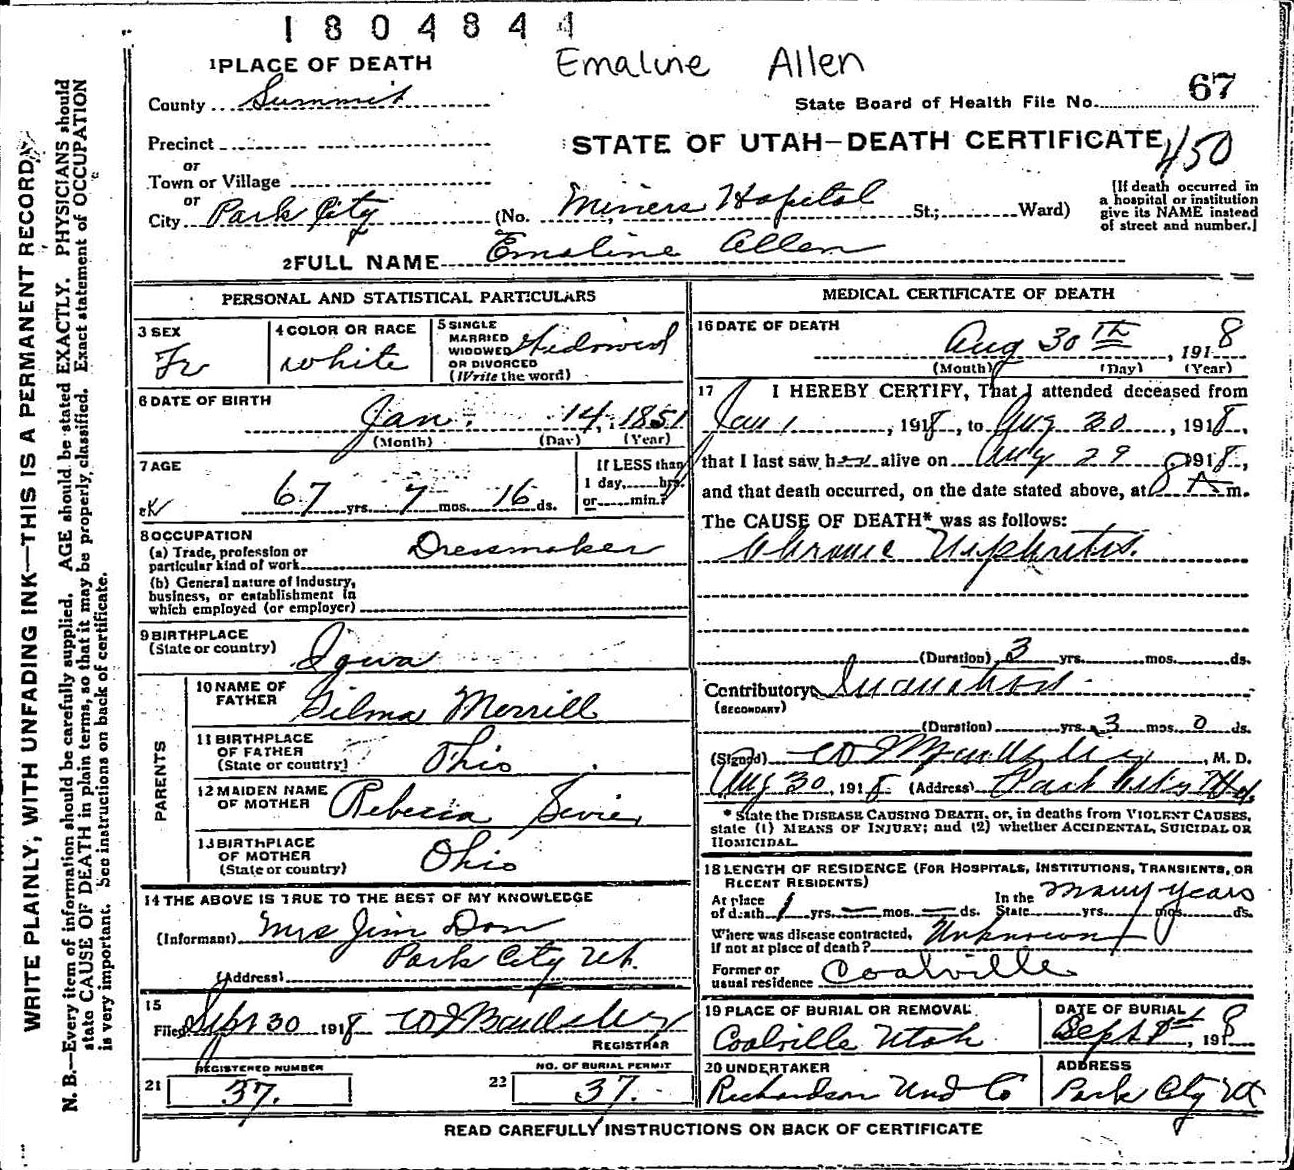 1804844
Emaline Allen
1 PLACE OF DEATH
County Summit
State Board of Health File No. 67
Precinct
STATE OF UTAH—DEATH CERTIFICATE
450
or
Town or Village
or
City Park City (No. Miners Hospital St.; Ward)
[If death occurred in
a hospital or institution
give its NAME instead
of street and number.]
2 FULL NAME Emaline Allen
WRITE PLAINLY, WITH UNFADING INK—THIS IS A PERMANENT RECORD
N. B.—Every item of information should be carefully supplied. AGE should be stated EXACTLY. PHYSICIANS should
state CAUSE OF DEATH in plain terms, so that it may be properly classified. Exact statement of OCCUPATION
is very important. See instructions on back of certificate.
PERSONAL AND STATISTICAL PARTICULARS
3 SEX
Fe
4 COLOR OR RACE
white
5 SINGLE
MARRIED
WIDOWED
OR DIVORCED
(Write the word)
Widowed
6 DATE OF BIRTH
Jan. 14, 1851
(Month) (Day) (Year)
7 AGE
67 yrs. 7 mos. 16 ds.
If LESS than
1 day, hrs.
or min.?
8 OCCUPATION
(a) Trade, profession or
particular kind of work Dressmaker
(b) General nature of industry,
business, or establishment in
which employed (or employer)
9 BIRTHPLACE
(State or country) Iowa
PARENTS
10 NAME OF
FATHER Gilma Merrill
11 BIRTHPLACE
OF FATHER
(State or country) Ohio
12 MAIDEN NAME
OF MOTHER Rebecca Sevier
13 BIRTHPLACE
OF MOTHER
(State or country) Ohio
14 THE ABOVE IS TRUE TO THE BEST OF MY KNOWLEDGE
(Informant) Mrs Jim Don
(Address) Park City Ut.
15
Filed Sept 30 1918
REGISTRAR
REGISTERED NUMBER
21 37.
NO. OF BURIAL PERMIT
22 37.
MEDICAL CERTIFICATE OF DEATH
16 DATE OF DEATH
Aug 30th, 1918
(Month) (Day) (Year)
17 I HEREBY CERTIFY, That I attended deceased from
Jan 1, 1918, to Aug 30, 1918,
that I last saw her alive on Aug 29 1918,
and that death occurred, on the date stated above, at 8 A m.
The CAUSE OF DEATH* was as follows:
Chronic Nephritis.
(Duration) 3 yrs. mos. ds.
Contributory Inanition
(SECONDARY)
(Duration) yrs. 3 mos. 0 ds.
(Signed) M. D.
Aug 30, 1918 (Address) Park City Ut.
* State the DISEASE CAUSING DEATH, or, in deaths from VIOLENT CAUSES,
state (1) MEANS OF INJURY; and (2) whether ACCIDENTAL, SUICIDAL OR
HOMICIDAL.
18 LENGTH OF RESIDENCE (FOR HOSPITALS, INSTITUTIONS, TRANSIENTS, OR
RECENT RESIDENTS)
At place
of death 1 yrs. — mos. — ds. In the
State many years yrs. mos. ds.
Where was disease contracted,
if not at place of death? Unknown
Former or
usual residence Coalville
19 PLACE OF BURIAL OR REMOVAL
Coalville Utah
DATE OF BURIAL
Sept 1st, 1918
20 UNDERTAKER
Richardson Und Co
ADDRESS
Park City Ut
READ CAREFULLY INSTRUCTIONS ON BACK OF CERTIFICATE